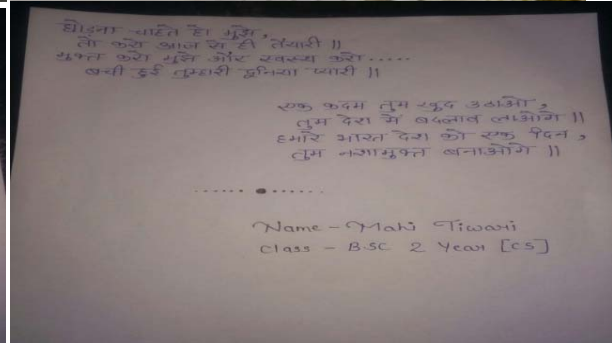 छोड़ना चाहते हो मुझे,
तो करो आज से ही तैयारी ||
मुक्त करो मुझे और स्वस्थ करो.....
बची हुई तुम्हारी दुनिया प्यारी ||
एक कदम तुम खुद उठाओ,
तुम देश मे बदलाव लाओगे ||
हमारे भारत देश को एक दिन,
तुम नशामुक्त बनाओगे ||
Name - Mahi Tiwari
Class - B.SC 2 Year [CS]